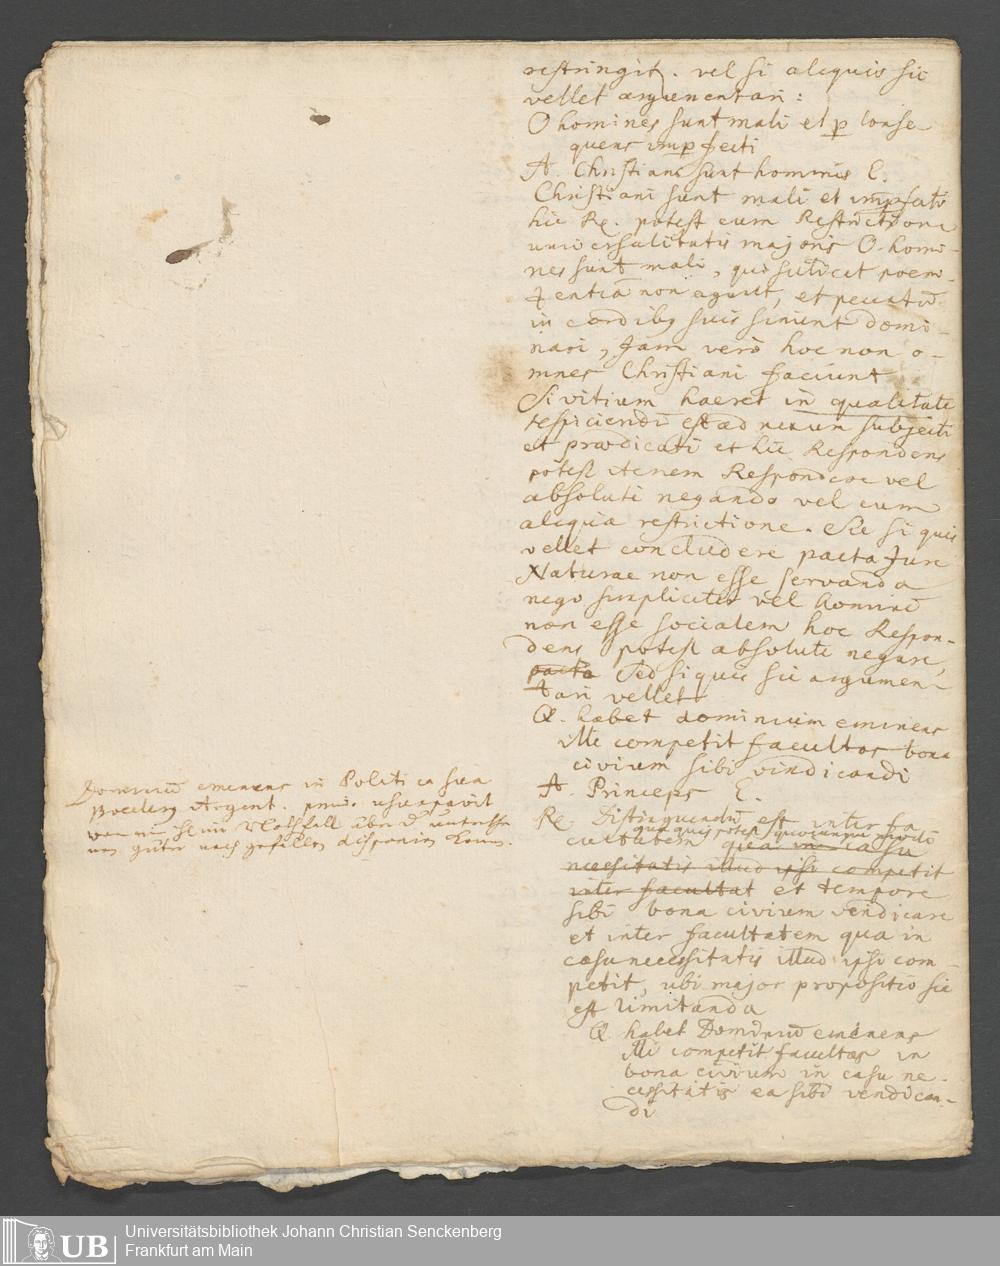 restringit. vel si aliquis sic
vellet argumentari:
O homines sunt mali et p conse-
quens impfecti
A. Christiani sunt homines E.
Christiani sunt mali et impfecti
hic Re. potest cum Restrictione
universalitatis majoris O homi-
nes sunt mali, qui scilicet poeni-
tentiā non agunt, et peccatū
in cordibq suis sinunt domi-
nari, Jam verò hoc non o-
mnes Christiani faciunt
Si vitium haeret in qualitate
respiciendū est ad nexum subjecti
et praedicati et hic Respondens
potest itenem Respondere vel
absolute negando vel cum
aliqua restrictione. Ale si quis
vellet concludere pacta Jure
Naturae non esse servanda
nego simpliciter vel hominē
non esse socialem hoc Respon-
dens potest absolute negare,
pacta Sed si quis sic argumen-
tari vellet
Q. habet dominium eminens
illi competit facultas bona
civium sibi vindicandi
A. Princeps E.
Re. Distinguendū est inter fa
cultatem qua quis potest quocunque modo
qua in casu
necessitatis illud ipsi competit
inter facultat et tempore
sibi bona civium vendicare
et inter facultatem qua in
casu necessitatis illud ipsi com-
petit, ubi major propositio sic
est limitanda
Q. habet Dominiū eminens
illi competit facultas in
bona civium in casu ne-
cessitatis ea sibi vendican-
di
Dominiū eminens in Politica sua
Boeclerq Argent. prim. usurpavit
über
güter nach gefallen disponiren
UB Universitätsbibliothek Johann Christian Senckenberg
Frankfurt am Main